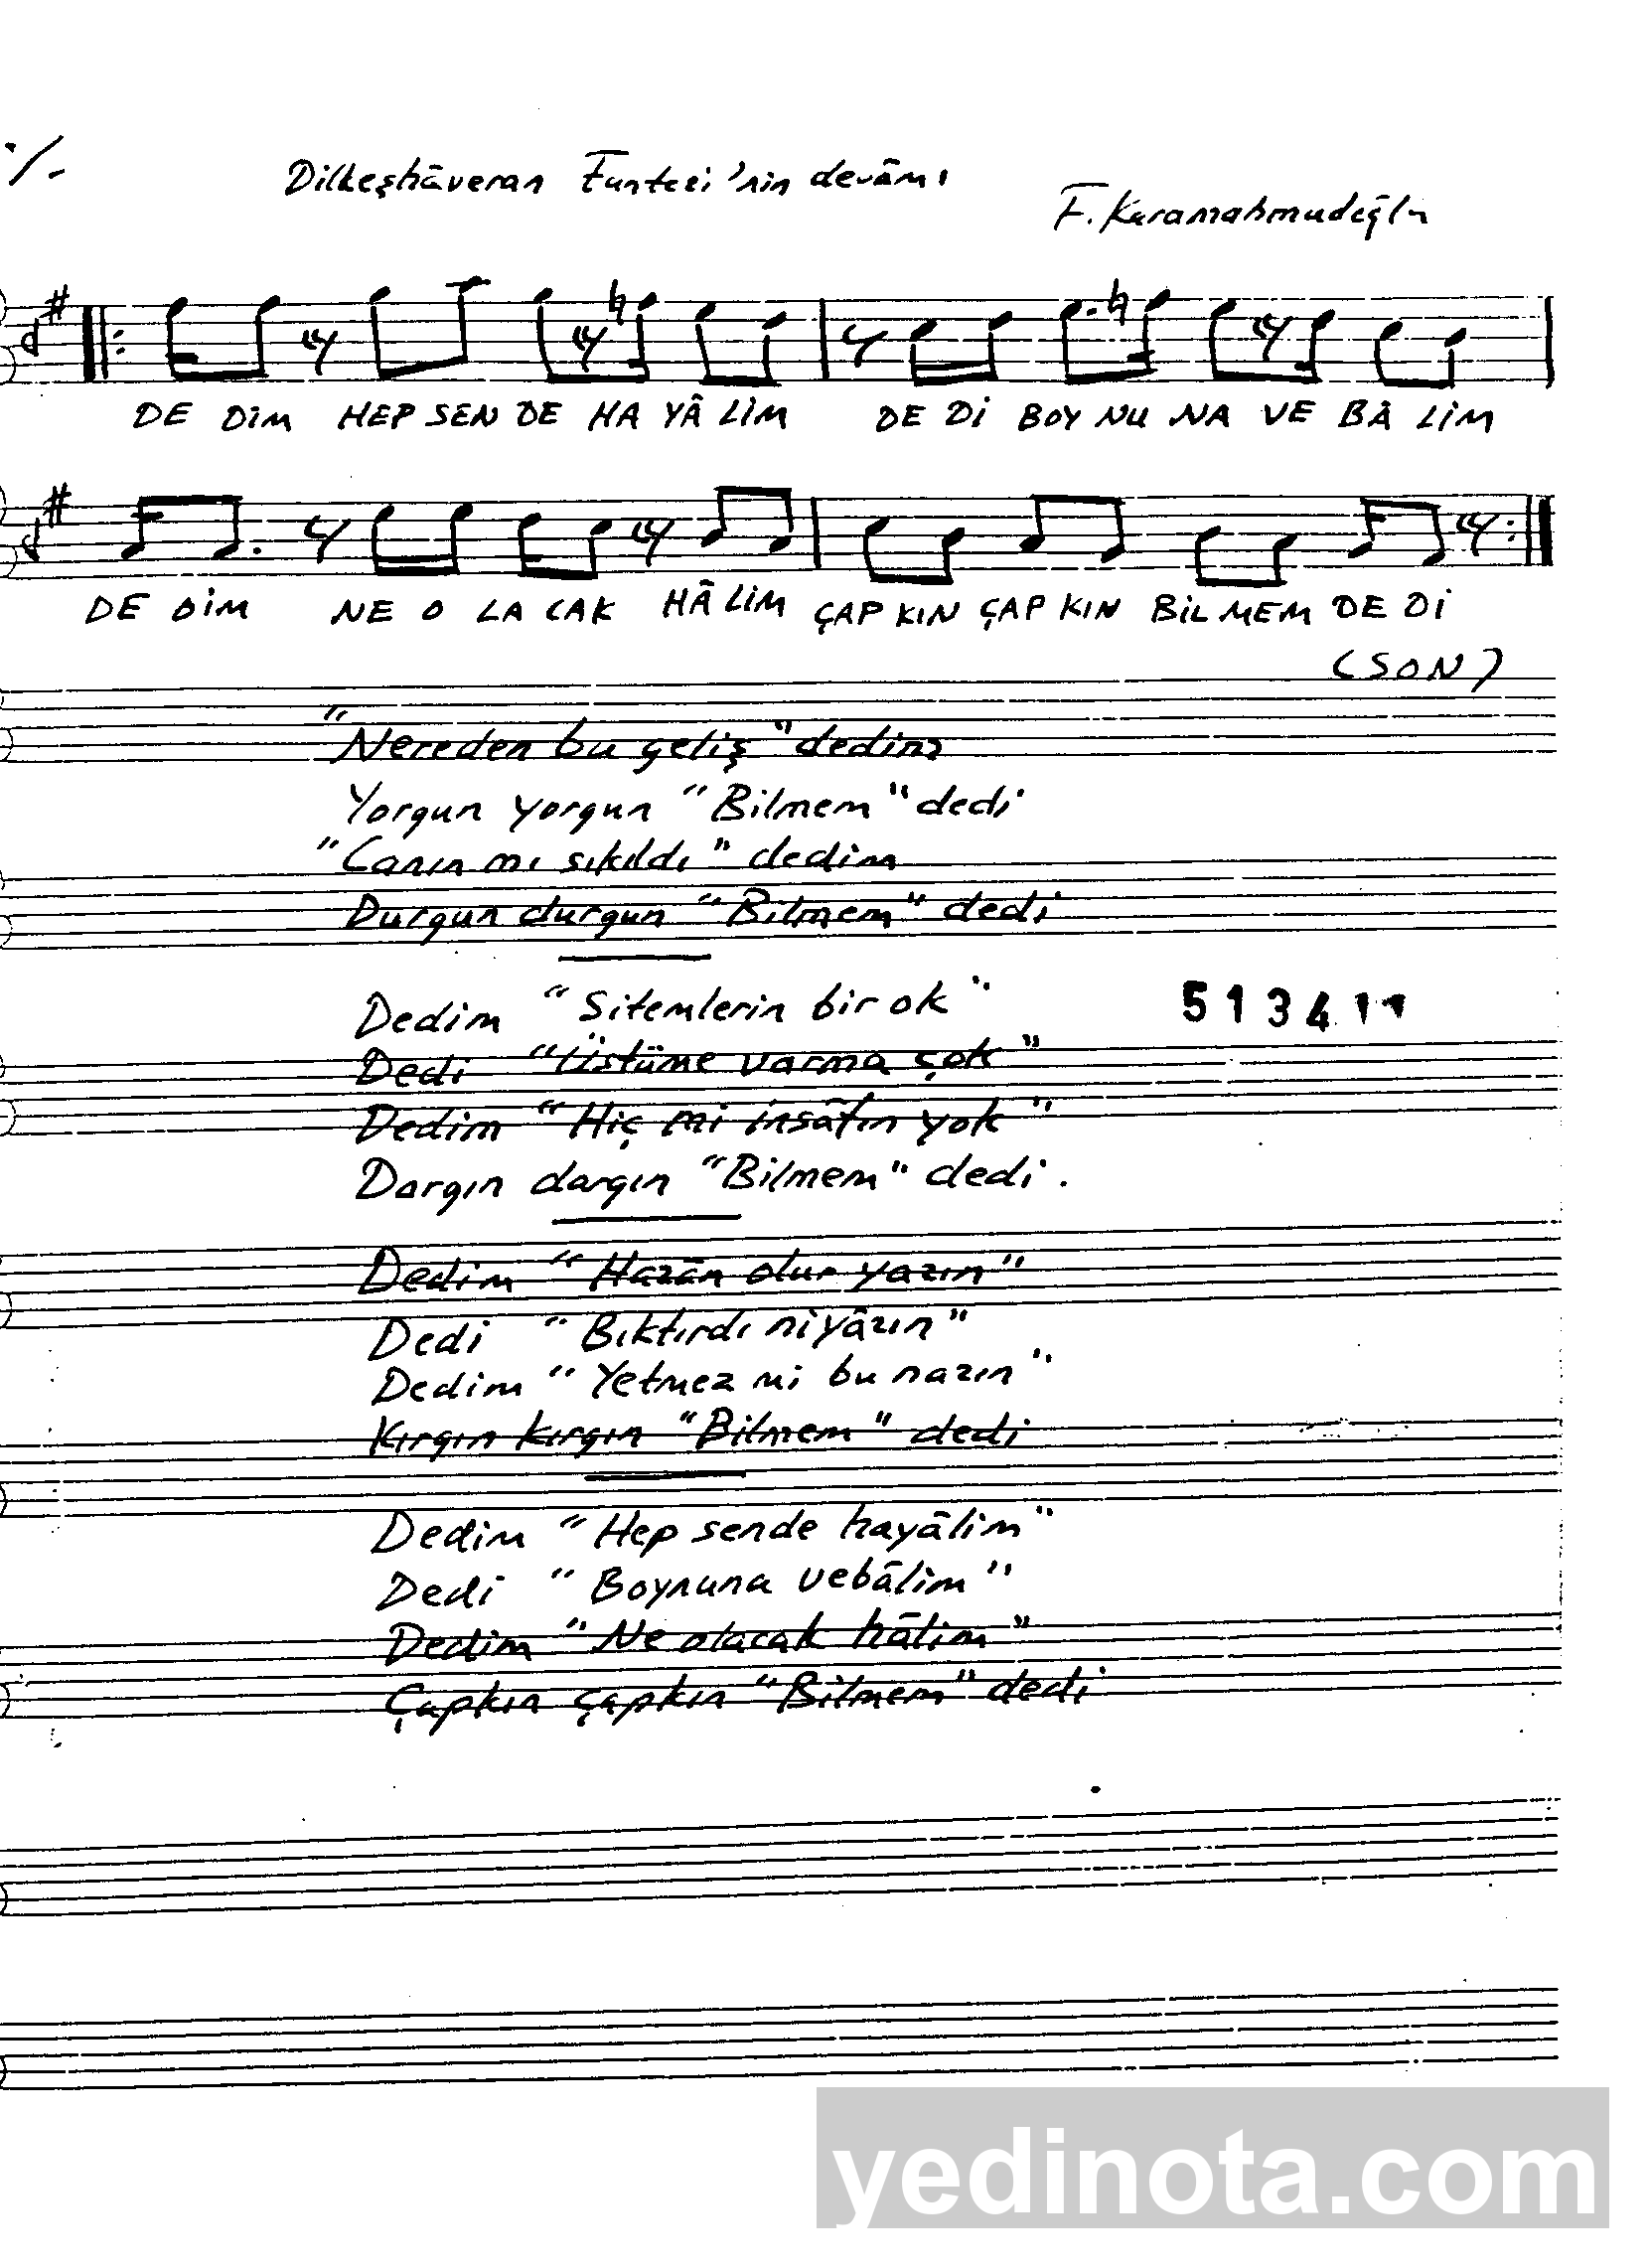 Dilkeşhâveran Fantezi'nin devâmı
F. Karamahmudoğlu
DE DİM HEP SEN DE HA YÂ LİM DE Dİ BOY NU NA VE BÂ LİM
DE DİM NE O LA CAK HÂ LİM ÇAP KIN ÇAP KIN BİL MEM DE Dİ
(SON)
"Nereden bu geliş" dedim
Yorgun yorgun "Bilmem" dedi
"Canın mı sıkıldı" dedim
Durgun durgun "Bilmem" dedi
Dedim "Sitemlerin bir ok"
5134
Dedi "Üstüme varma çok"
Dedim "Hiç mi insâfın yok"
Dargın dargın "Bilmem" dedi.
Dedim "Hazân olur yazın"
Dedi "Bıktırdı niyâzın"
Dedim "Yetmez mi bu nazın"
Kırgın kırgın "Bilmem" dedi
Dedim "Hep sende hayâlim"
Dedi "Boynuna vebâlim"
Dedim "Ne olacak hâlim"
Çapkın çapkın "Bilmem" dedi
yedinota.com